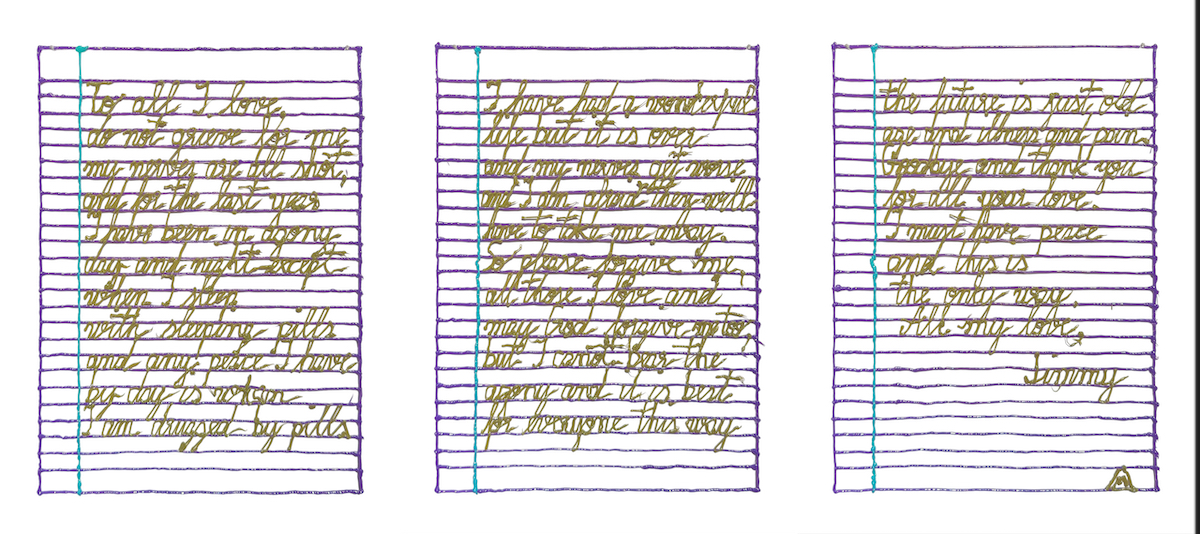 To all I love,
do not grieve for me
my nerves are all shot,
and for the last year
I have been in agony
day and night except
when I sleep
with sleeping pills
and any peace I have
by day is when
I am drugged by pills
I have had a wonderful
life but it is over
and my nerves get worse
and I am afraid they will
have to take me away.
So please forgive me,
all those I love and
may God forgive me too,
but I cannot bear the
agony and it is best
for everyone this way
the future is just old
age and illness and pain.
Goodbye and thank you
for all your love.
I must have peace
and this is
the only way.
All my love,
Jimmy